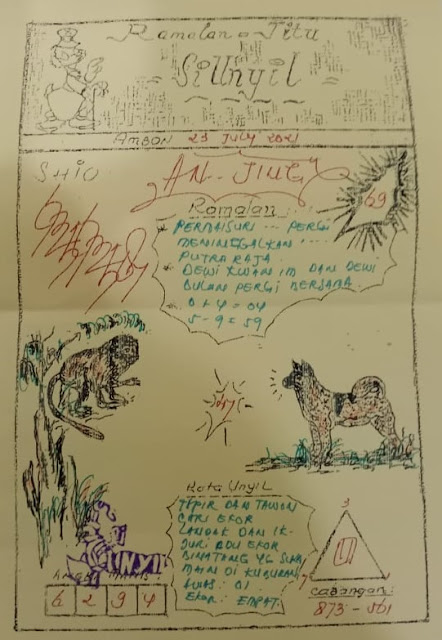 Ramalan - Jitu
SiUnyil
AMBON 23 JULY 2021
SHIO
AN - JING
69
Ramalan :
* PERMAISURI ... PERGI
MENINGGALKAN ....
PUTRA RAJA.
* DEWI KWAN IM DAN DEWI
BULAN PERGI BERSAMA.
* 0 + 4 = 04
5 - 9 = 59
Kata Unyil
TAPIR DAN TAWON
CARI EKOR
LANDAK DAN IK-
JURI ADU EKOR
BINATANG YG SUKA
MAIN DI KUBURAN
LUAS: 01
EKOR: EMPAT.
UNYIL
6 2 9 4
3
Cabangan:
873 - 501